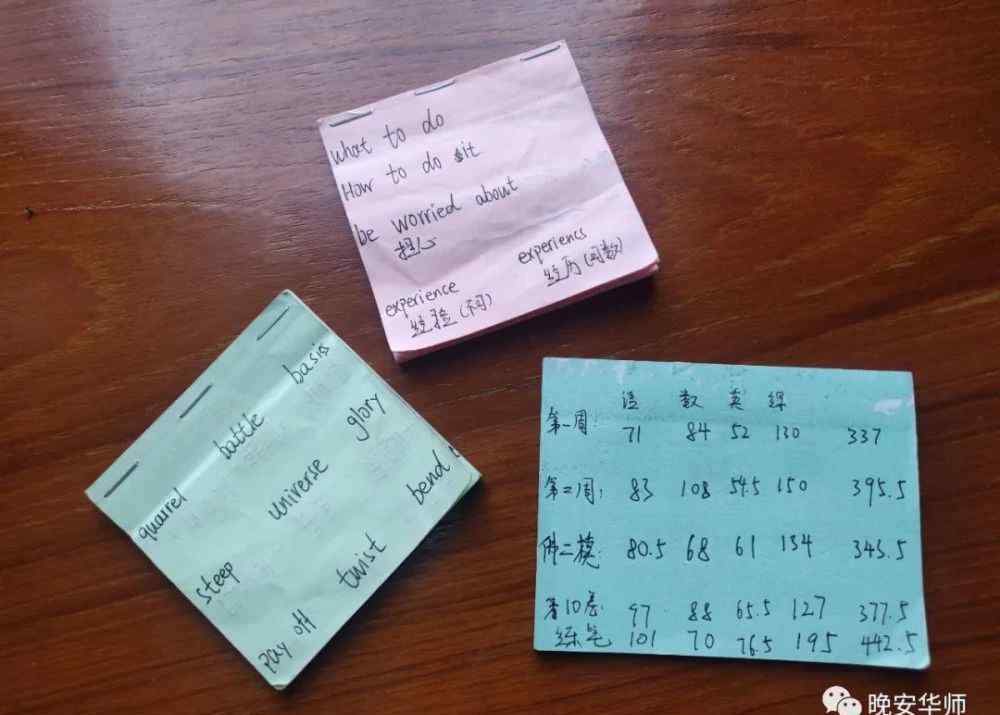 What to do
How to do it
be worried about
担心
experience experiencs
经验(不可) 经历(可数)
quarrel battle basis
steep universe glory
pay off twist bend
语 数 英 综
第一周: 71 84 52 130 337
第二周: 83 108 54.5 150 395.5
佛二模: 80.5 68 61 134 343.5
10卷 97 88 65.5 127 377.5
练笔 101 70 76.5 195 442.5
晚安华师